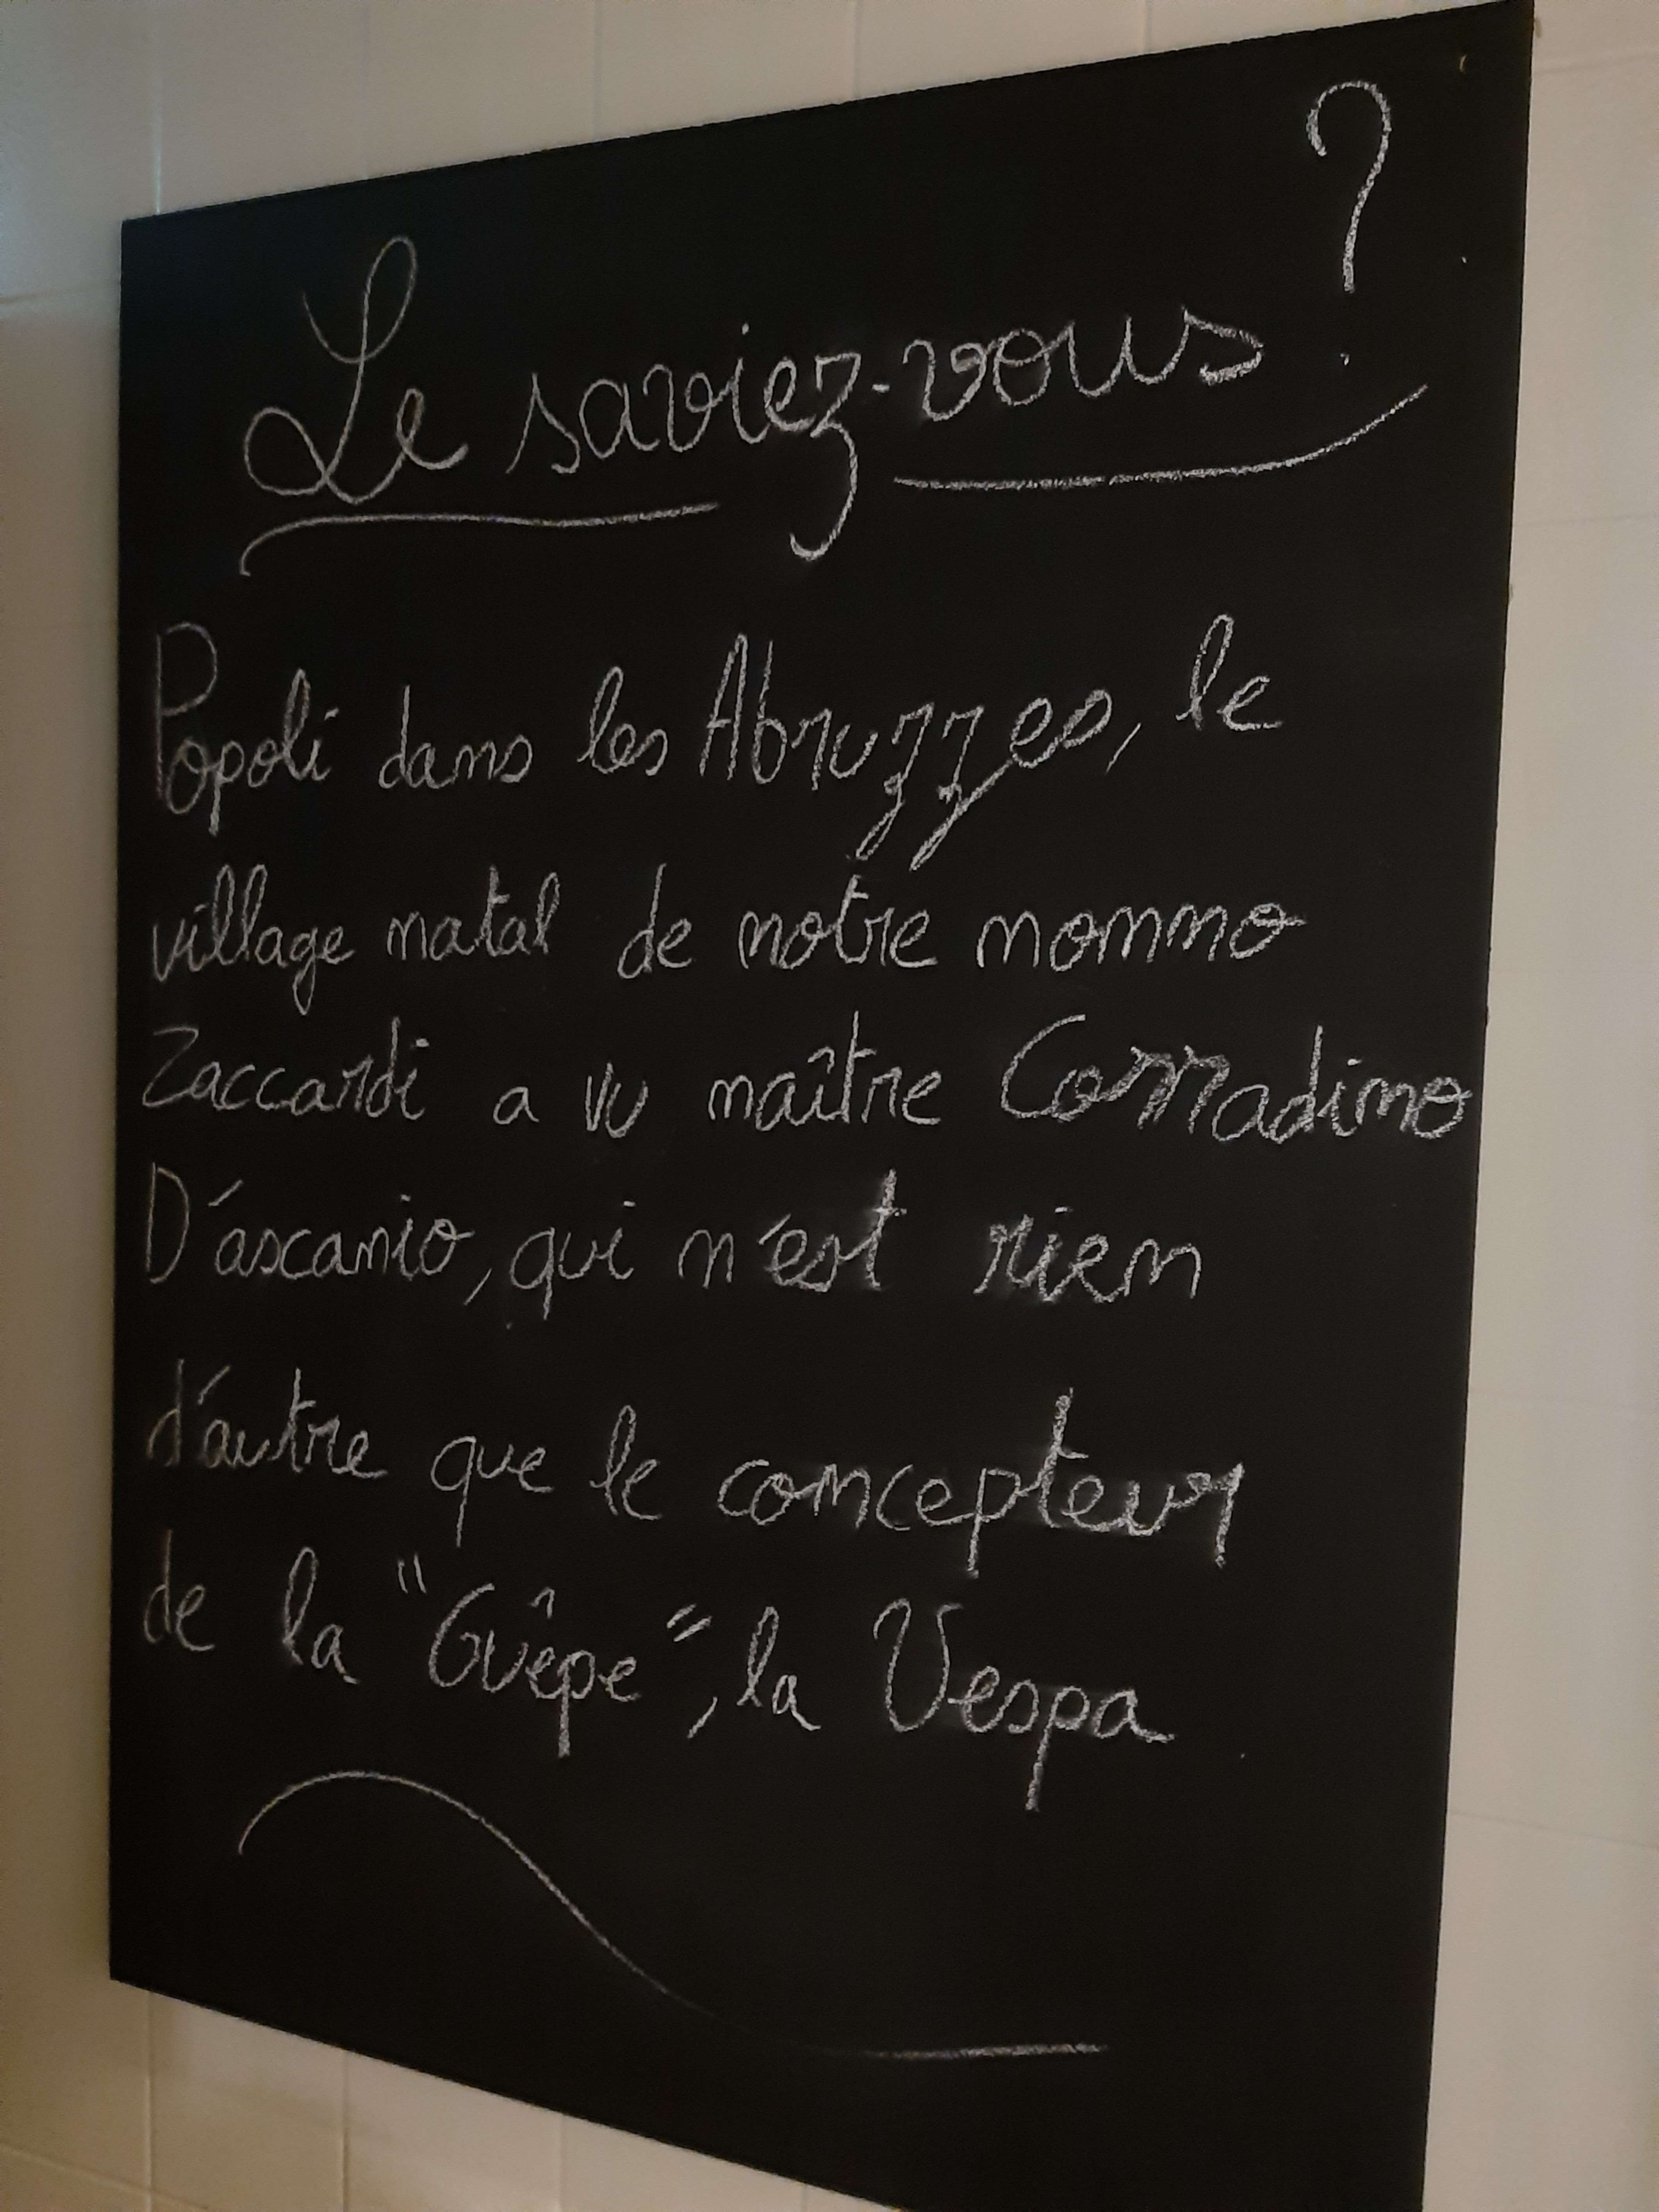 Le saviez-vous ?
Popoli dans les Abruzzes, le
village natal de notre nonno
Zaccardi a vu maître Corradino
D'ascanio, qui n'est rien
d'autre que le concepteur
de la "Guêpe", la Vespa